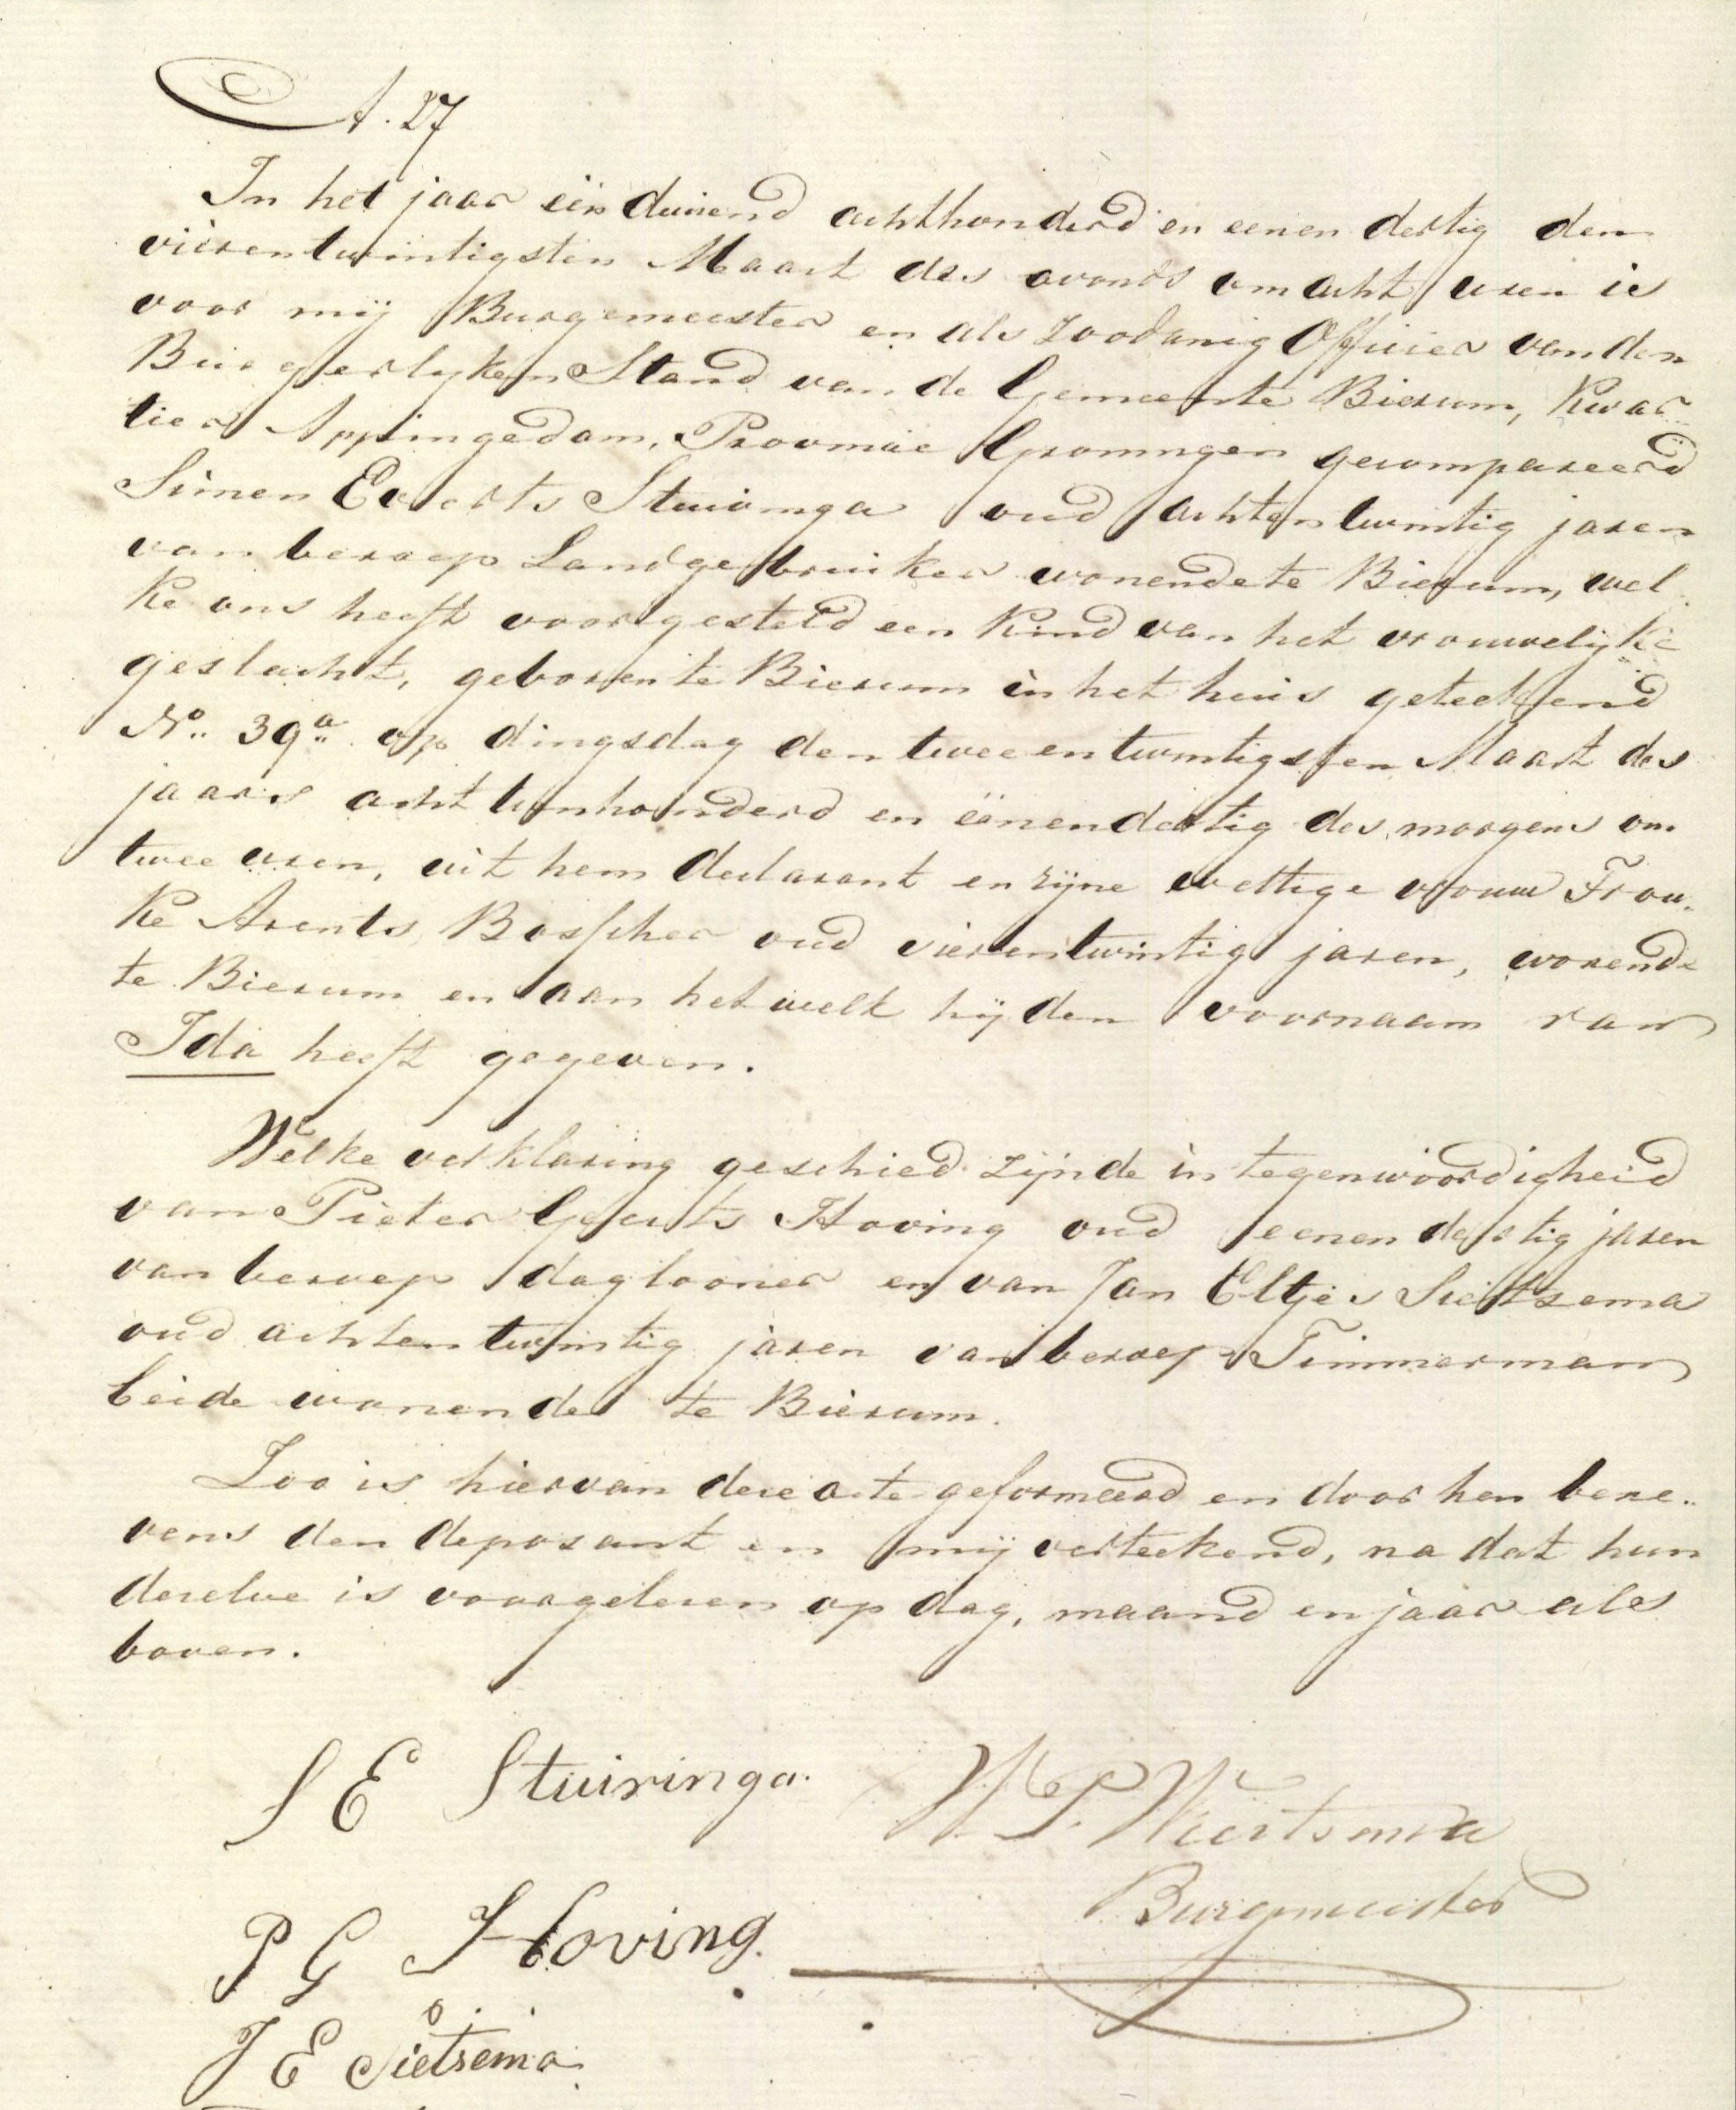 A. 27
In het jaar één duizend achthonderd en eenen dertig den
vierentwintigsten Maart des avonds om acht uren is
voor mij Burgemeester en als zoodanig Officier van den
Burgerlyken Stand van de Gemeente Bierum, Kwar
tier Appingedam, Provincie Groningen gecompareerd
Simen Everts Stuiringa oud achtentwintig jaren
van beroep Landgebruiker wonende te Bierum, wel
ke ons heeft voorgesteld een Kind van het vrouwelijke
geslacht, geboren te Bierum in het huis geteekend
No. 39a op dingsdag den tweeentwintigsten Maart des
jaars achttienhonderd en éénendertig des morgens om
twee uren, uit hem declarant en zijne wettige vrouw Frou-
ke Arents Bosscher oud vierentwintig jaren, wonende
te Bierum en aan hetwelk hij den voornaam van
Ida heeft gegeven.
Welke verklaring geschied zijnde in tegenwoordigheid
van Pieter Geerts Hoving oud eenen dertig jaren
van beroep daglooner en van Jan Eltjes Sietsema
oud achtentwintig jaren van beroep Timmerman
beide wonende te Bierum.
Zoo is hiervan deze acte geformeerd en door hen bene-
vens den deposant en mij verteekend, na dat hun
dezelve is voorgelezen op dag, maand en jaar als
boven.
S E Stuiringa.
W. P. Wiertsema
Burgemeester
P G Hoving.
J E Sietsema.